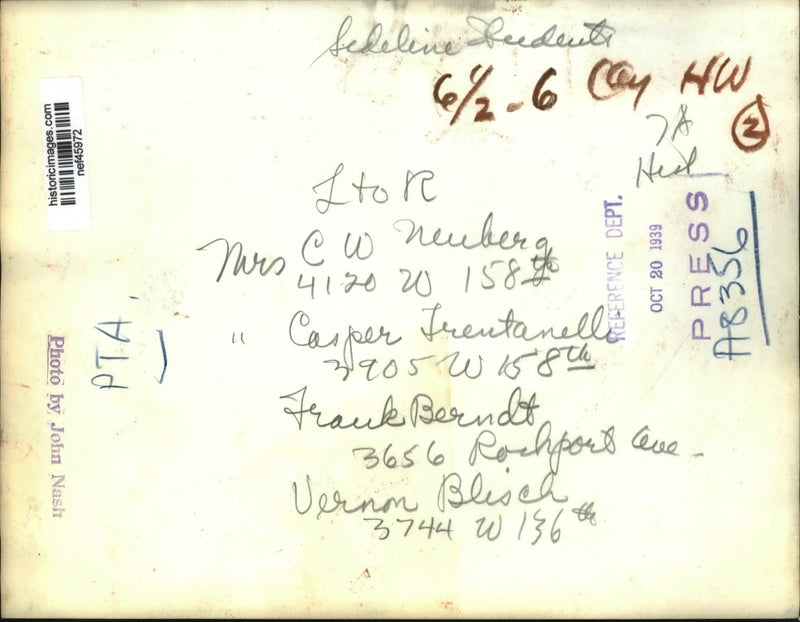 Sideline Students
6 1/2 - 6 Coy HW
2
historicimages.com
nef45972
L to R
Mrs C W Neuberg
4120 W 158th
" Casper Trentanelli
3905 W 158th
Frank Berndt
3656 Rockport Ave.
Vernon Blisch
3744 W 136th
PTA.
Photo by John Nash
REFERENCE DEPT.
OCT 20 1939
PRESS
A8356